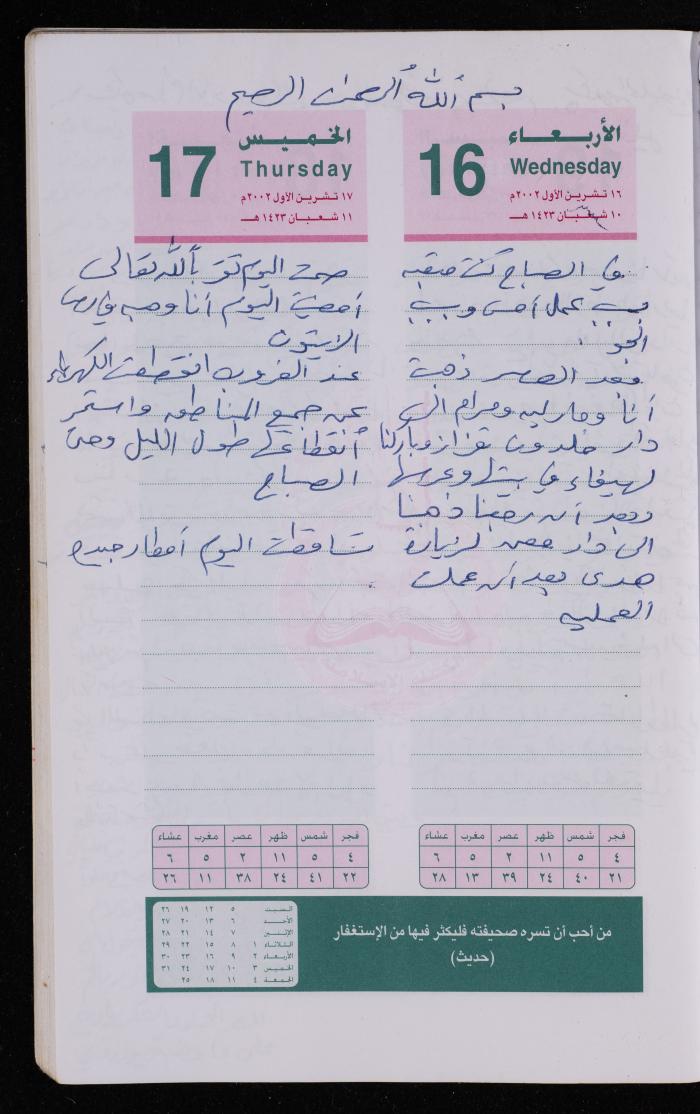 بسم الله الرحمن الرحيم
الأربعاء
16
Wednesday
١٦ تشرين الأول ٢٠٠٢م
١٠ شعبان ١٤٢٣ هـ
في الصباح كنت
بسبب عمل أمس وبسبب
الجو
وبعد العصر ذهبت
أنا ومارليه ومرام الى
دار خلدون قزاز وباركنا
لهيفاء في بيتها وعرسها
وبعد أن رجعنا ذهبنا
الى دار عمر لزيارة
هدى بعد أن عملت
العملية
الخميس
17
Thursday
١٧ تشرين الأول ٢٠٠٢م
١١ شعبان ١٤٢٣ هـ
صمت اليوم بالله تعالى
أمضيت اليوم أنا
الزيتون
عند الغروب انقطعت الكهرباء
عن جميع المناطق واستمر
أنقطاعها طول الليل وحتى
الصباح
تساقطت اليوم أمطار جيدة
فجر شمس ظهر عصر مغرب عشاء
٤ ٥ ١١ ٢ ٥ ٦
٢١ ٤٠ ٢٤ ٣٩ ١٣ ٢٨
فجر شمس ظهر عصر مغرب عشاء
٤ ٥ ١١ ٢ ٥ ٦
٢٢ ٤١ ٢٤ ٣٨ ١١ ٢٦
من أحب أن تسره صحيفته فليكثر فيها من الإستغفار
(حديث)
السبت ٥ ١٢ ١٩ ٢٦
الأحد ٦ ١٣ ٢٠ ٢٧
الإثنين ٧ ١٤ ٢١ ٢٨
الثلاثاء ١ ٨ ١٥ ٢٢ ٢٩
الأربعاء ٢ ٩ ١٦ ٢٣ ٣٠
الخميس ٣ ١٠ ١٧ ٢٤ ٣١
الجمعة ٤ ١١ ١٨ ٢٥